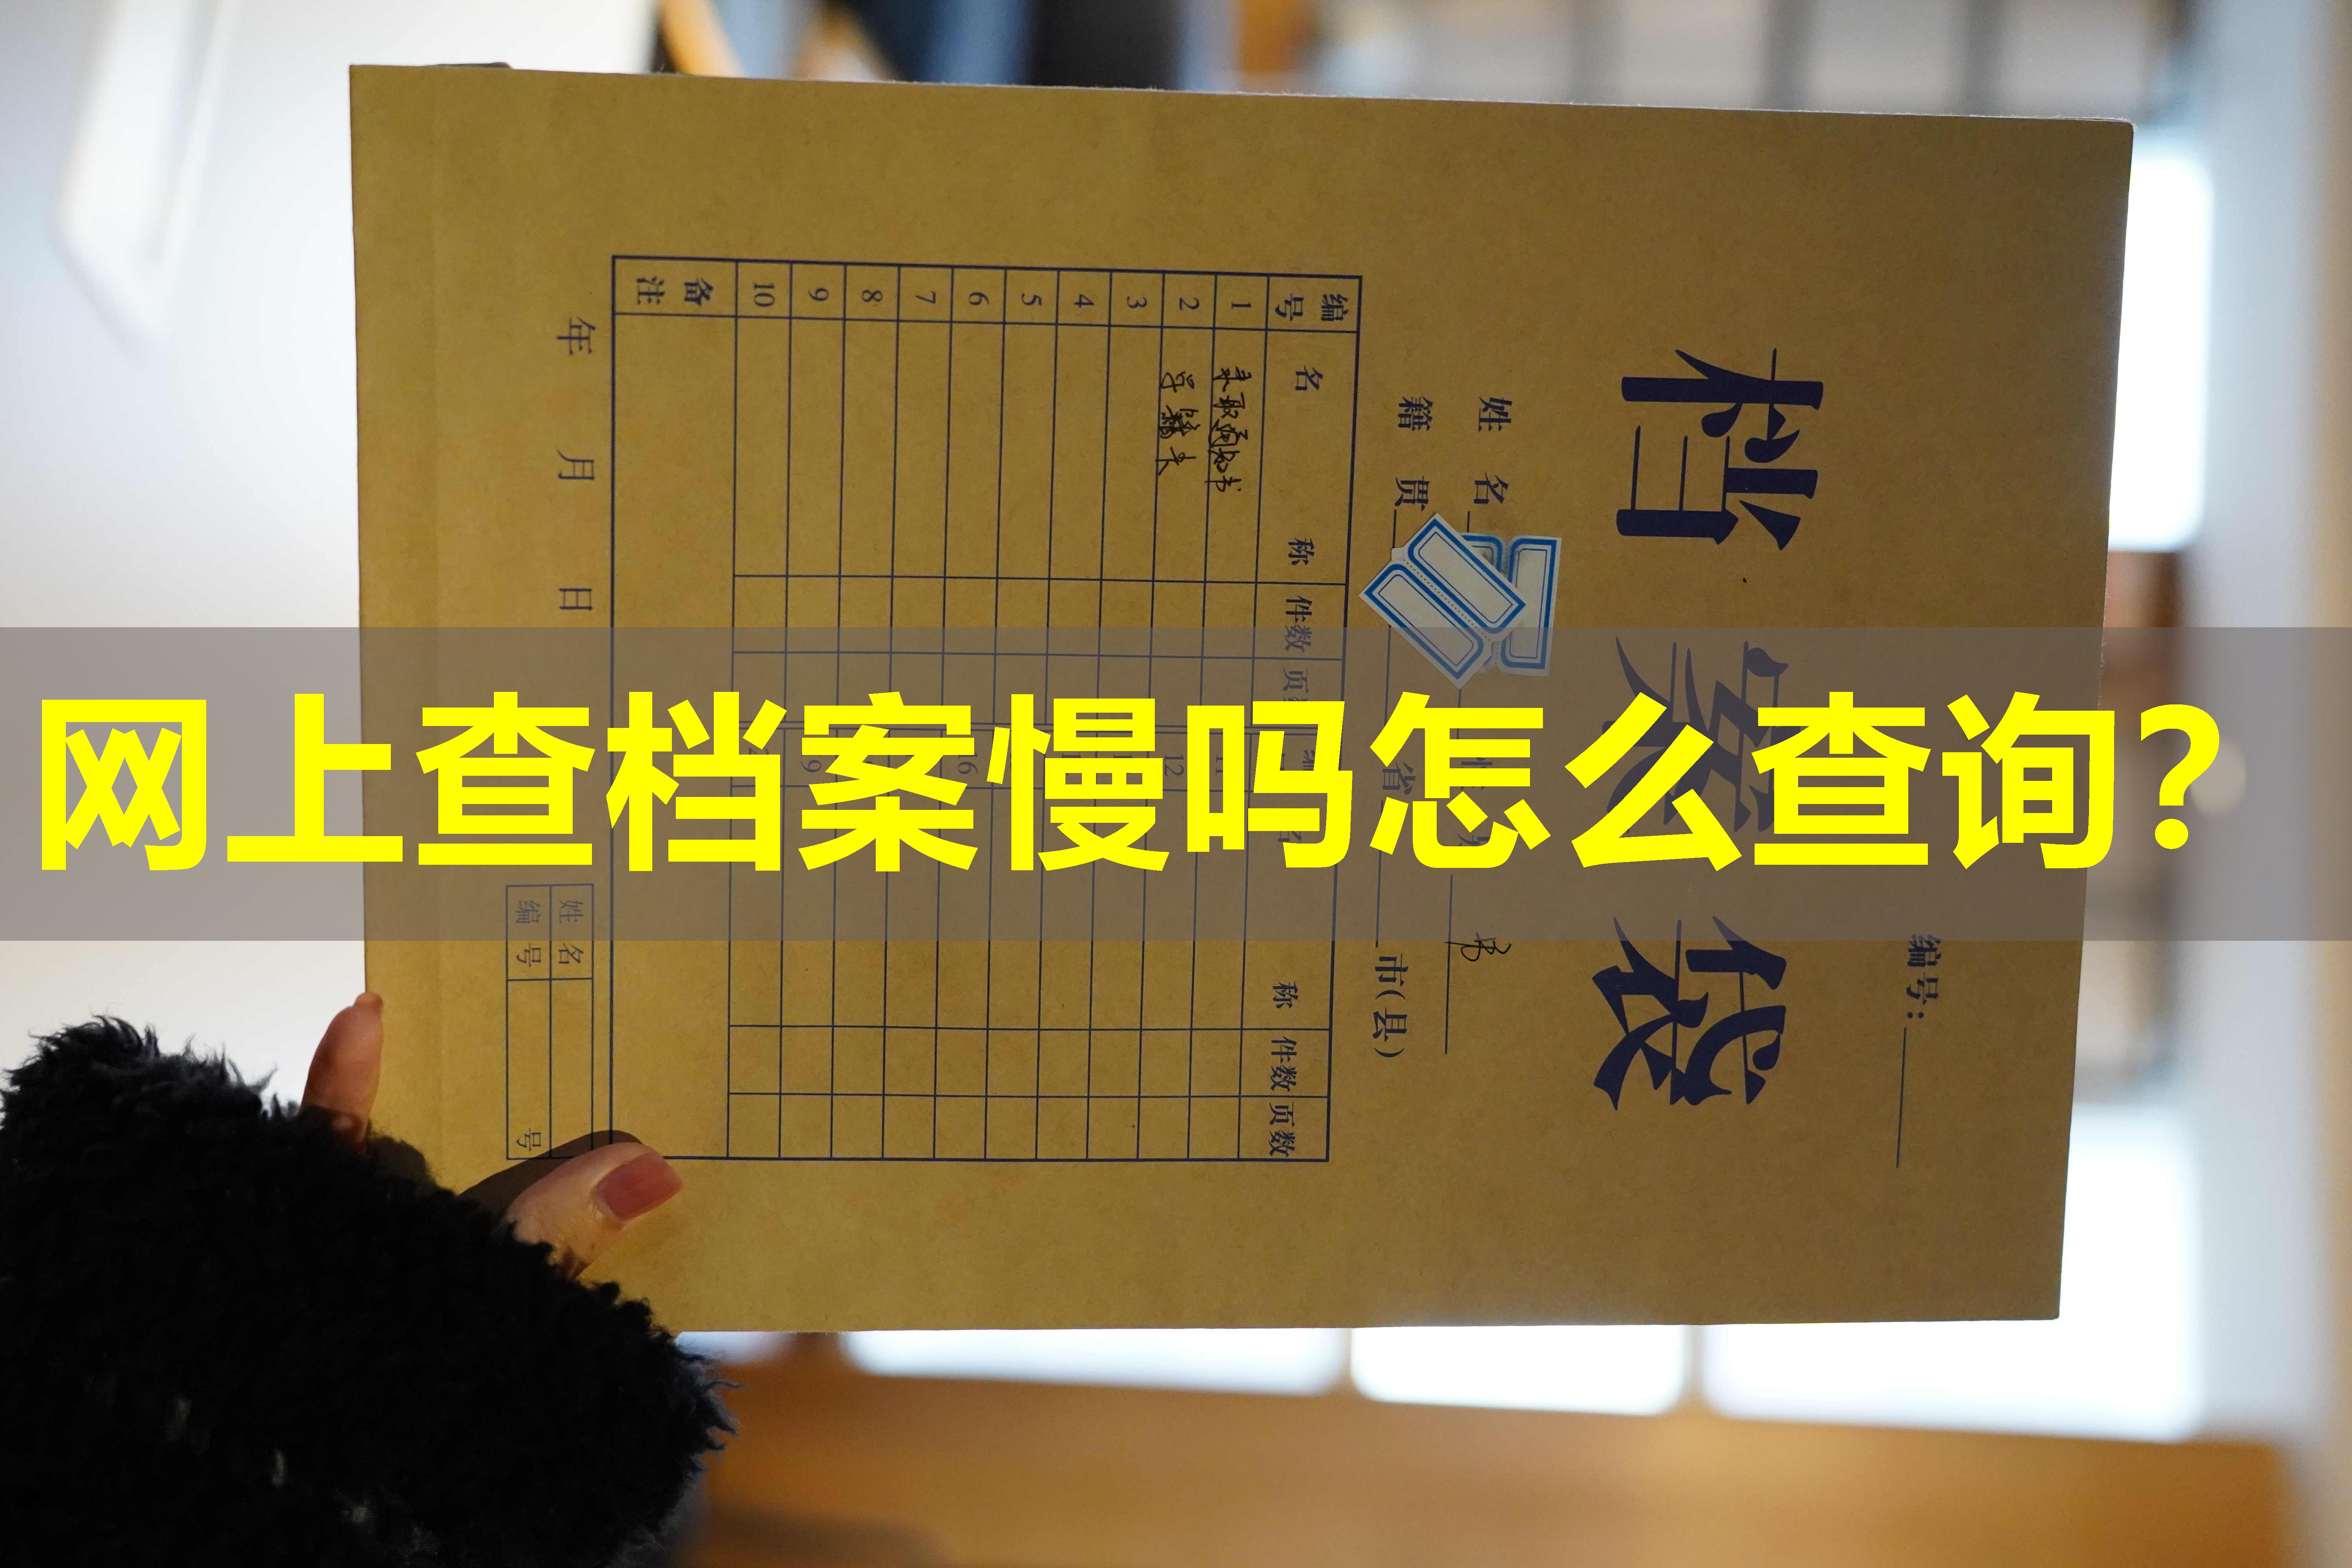 网上查档案慢吗怎么查询？
编号：
档案袋
姓名
籍贯 省 市（县）
编号 名称 件数 页数 编 名称 件数 页数
1 录取通知书
2 学籍卡
3
4
5
6
7
8
9
10
12
备注
年 月 日
姓名
编号 号